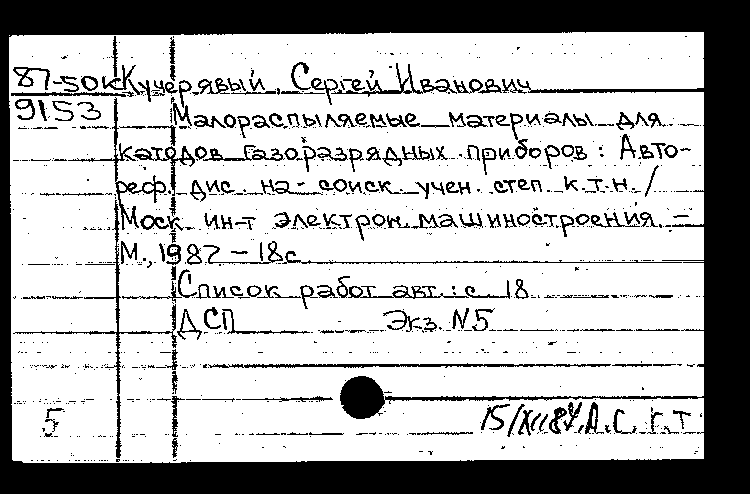 87-50к Кучерявый, Сергей Иванович
9153 Малораспыляемые материалы для
катодов газоразрядных приборов: Авто-
реф. дис. на соиск. учен. степ. к.т.н. /
Моск. ин-т электрон. машиностроения. –
М., 1987 – 18с
Список работ авт.: с. 18
ДСП Экз. N5
5 15/XII87. А.С. г.т